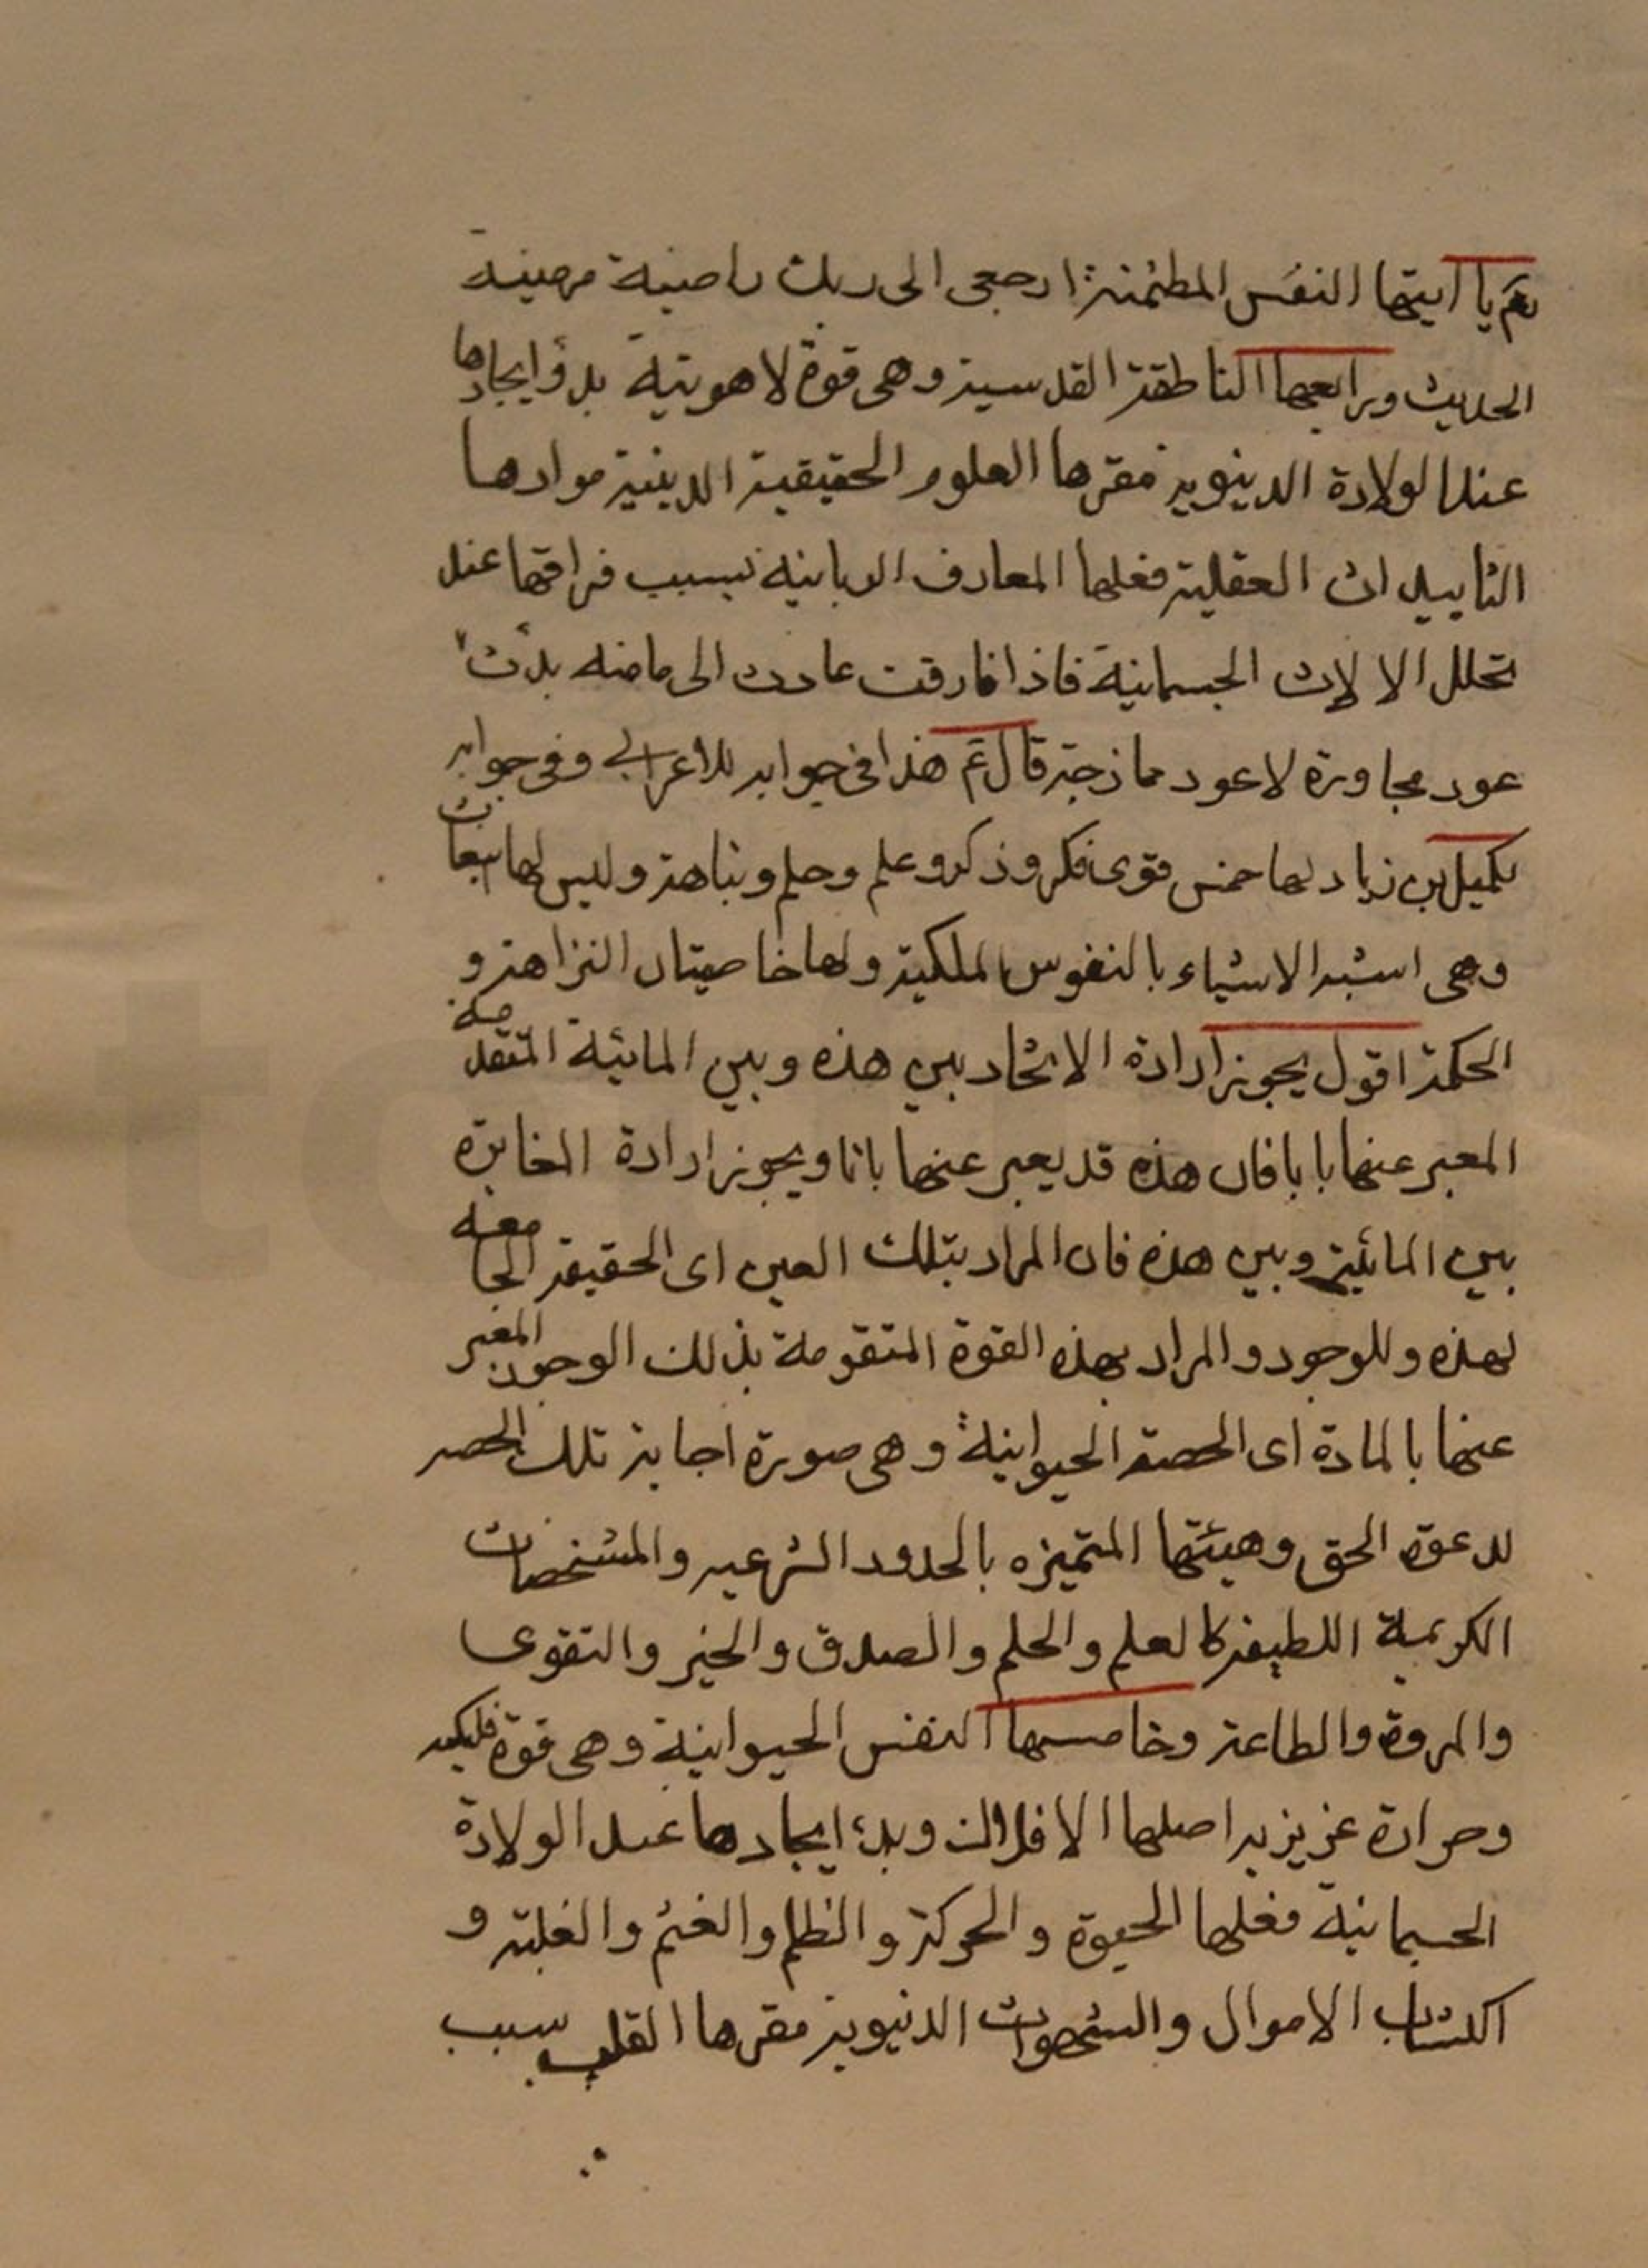 تعم يا ايتها النفس المطئمنة ارجعى الى ربك راضية مرضية
الحديث ورابعها الناطقة القدسية وهى قوة لاهوتية بدؤ ايجادها
عند الولادة الدنيوية مقرها العلوم الحقيقية الدينية موادها
التاييدات العقلية فعلها المعارف الربانية بسبب فراقها عند
تحلل الالات الجسمانية فاذا فارقت عادت الى ما منه بدئت
عود مجاورة لا عود ممازجة قال ع هذا فى جوابه للاعرابى وفى جوابه
لكميل بن زياد لها خمس قوى فكر وذكر وعلم وحلم ونباهة وليس لها انبعاث
وهى اشبه الاشياء بالنفوس الملكية ولها خاصيتان النزاهة و
الحكمة اقول يجوز ارادة الاتحاد بين هذه وبين المائية المتقدمة
المعبر عنها بانا فان هذه قد يعبر عنها بانا ويجوز ارادة المغايرة
بين المائية وبين هذه فان المراد بتلك العين اى الحقيقة الجامعة
لهذه وللوجود والمراد بهذه القوة المتقومة بذلك الوجود المعبر
عنها بالمادة اى الحصة الحيوانية وهى صورة اجابة تلك الحصه
لدعوة الحق وهيئتها المتميزه بالحدود الشرعيه والمشخصات
الكريمة اللطيفة كالعلم والحلم والصدق والخير والتقوى
والمروة والطاعة وخامسها النفس الحيوانية وهى قوة فلكيه
وحرارة غريزيه اصلها الافلاك وبدء ايجادها عند الولادة
الجسمانية فعلها الحيوة والحركة والظلم والغشم والغلبة و
اكتساب الاموال والشهوات الدنيوية مقرها القلب سبب